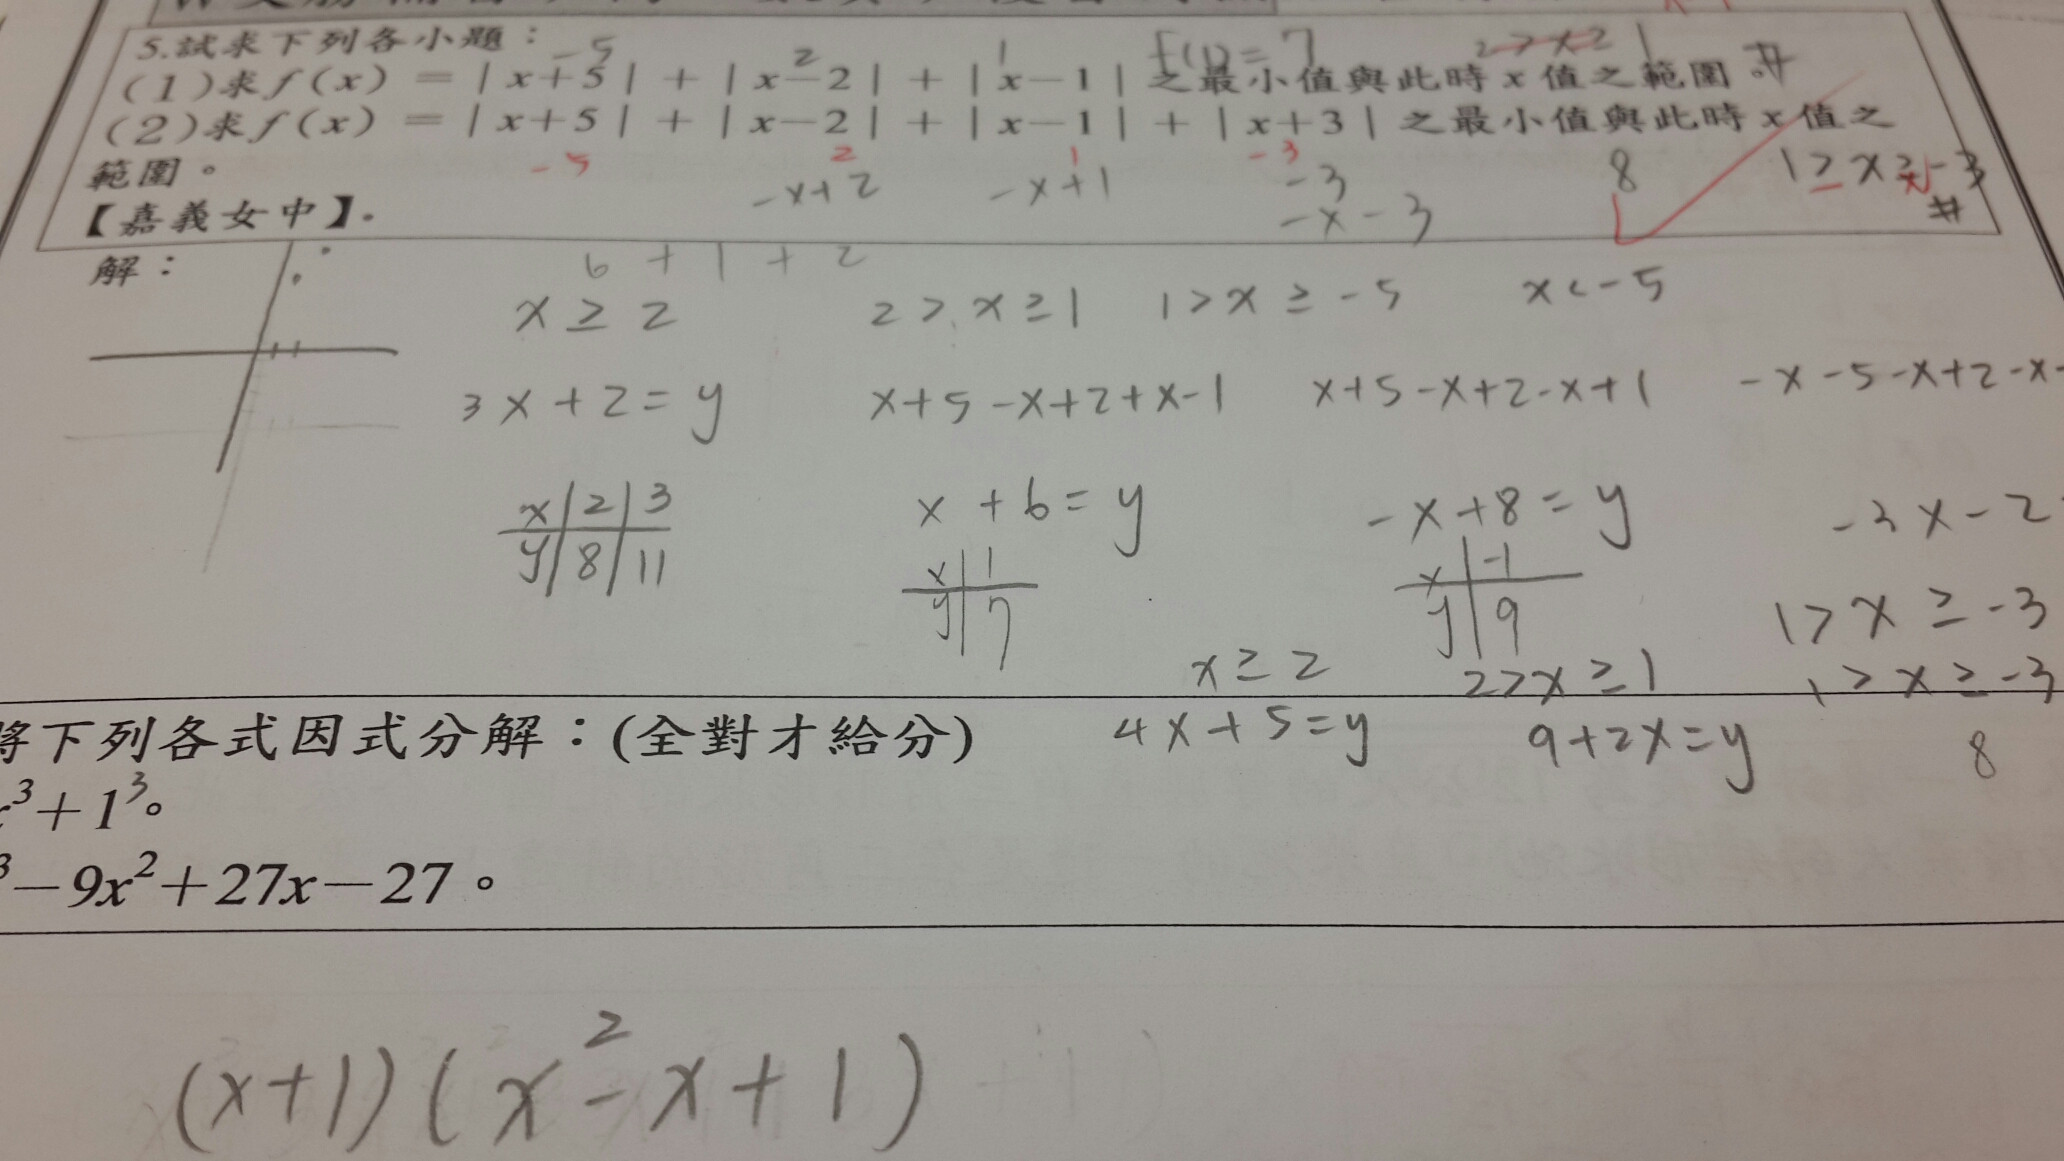 5.試求下列各小題：
-5 2 1 f(1)=7 2>x≥1 #
(1)求f(x)=|x+5|+|x-2|+|x-1|之最小值與此時x值之範圍。
(2)求f(x)=|x+5|+|x-2|+|x-1|+|x+3|之最小值與此時x值之
範圍。
-5 2 1 -3
-x+2 -x+1 -3 8 1≥x≥-3
-x-3 #
【嘉義女中】.
解：
6+1+2
x≥2 2>x≥1 1>x≥-5 x<-5
3x+2=y x+5-x+2+x-1 x+5-x+2-x+1 -x-5-x+2-x-
x 2 3 x+6=y -x+8=y -3x-2
y 8 11 x 1 x -1
y 7 y 9 1>x≥-3
x≥2 2>x≥1 1>x≥-3
4x+5=y 9+2x=y 8
將下列各式因式分解：(全對才給分)
³+1³。
³-9x²+27x-27。
(x+1)(x²-x+1)